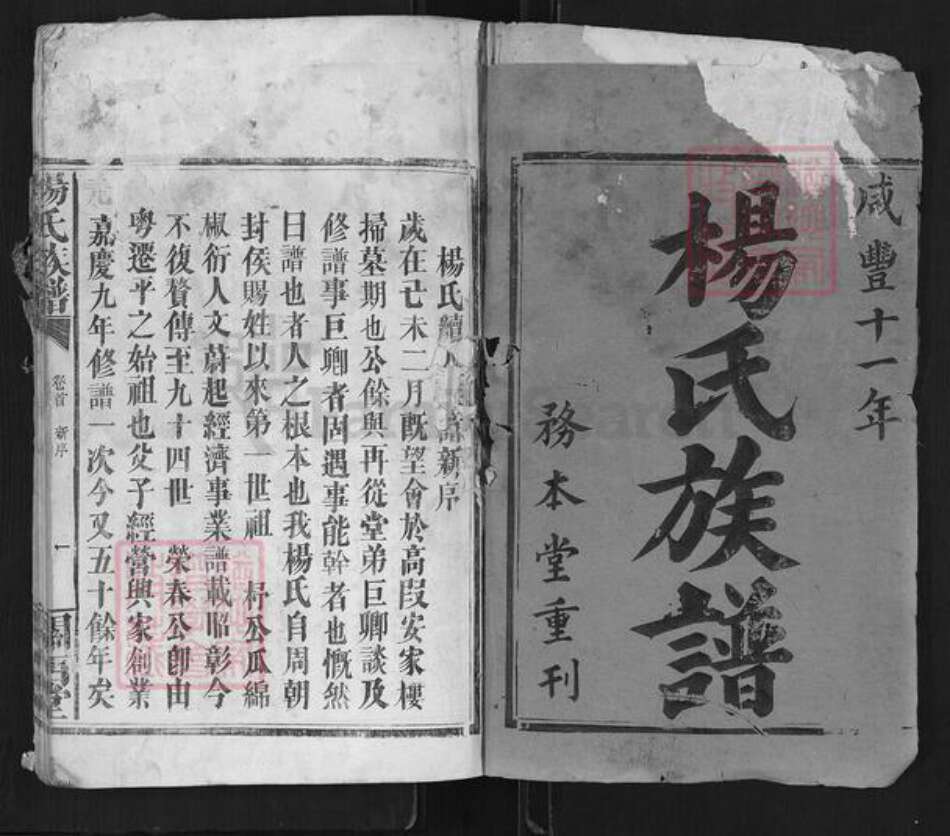 咸豐十一年
楊氏族譜
務本堂重刊
楊氏續 譜新序
歲在己未二月既望會於高叚安家樓
掃墓期也公餘與再從堂弟巨卿談及
修譜事巨卿者固遇事能幹者也慨然
曰譜也者人之根本也我楊氏自周朝
封侯賜姓以來第一世祖 杼公瓜綿
椒衍人文蔚起經濟事業譜載昭彰今
不復贅傳至九十四世 榮春公卽由
粵遷平之始祖也父子經營興家創業
嘉慶九年修譜一次今又五十餘年矣
楊氏族譜
卷首 新序
一